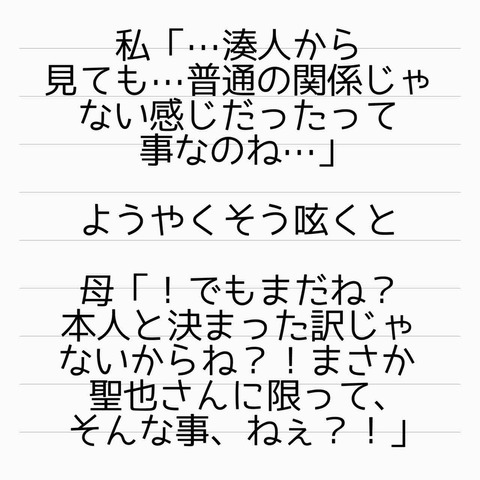 私「…湊人から
見ても…普通の関係じゃ
ない感じだったって
事なのね…」
ようやくそう呟くと
母「！でもまだね？
本人と決まった訳じゃ
ないからね？！まさか
聖也さんに限って、
そんな事、ねぇ？！」